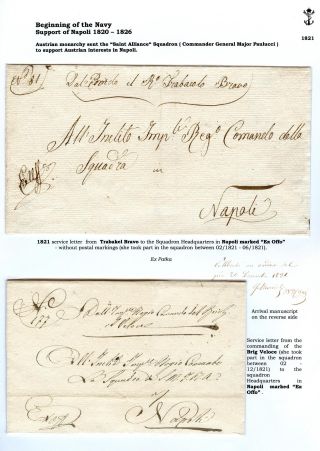 Beginning of the Navy
Support of Napoli 1820 – 1826
1821
Austrian monarchy sent the "Saint Alliance" Squadron ( Commander General Major Paulucci )
to support Austrian interests in Napoli.
Nº 81
Dal Bordo il Rº Trabacolo Bravo
All' Inclito Imp.le Reg.o Comando della
Squadra
in
Napoli
1821 service letter from Trabakel Bravo to the Squadron Headquarters in Napoli marked "Ex Offo"
- without postal markings (she took part in the squadron between 02/1821 - 06/1821).
Ex Patka
Arrival manuscript
on the reverse side
Service letter
from the
commanding of the
Brig Veloce (she took
part in the squadron
between 02 -
12/1821) to the
Squadron
Headquarters in
Napoli marked "Ex
Offo" .
Veloce
Napoli